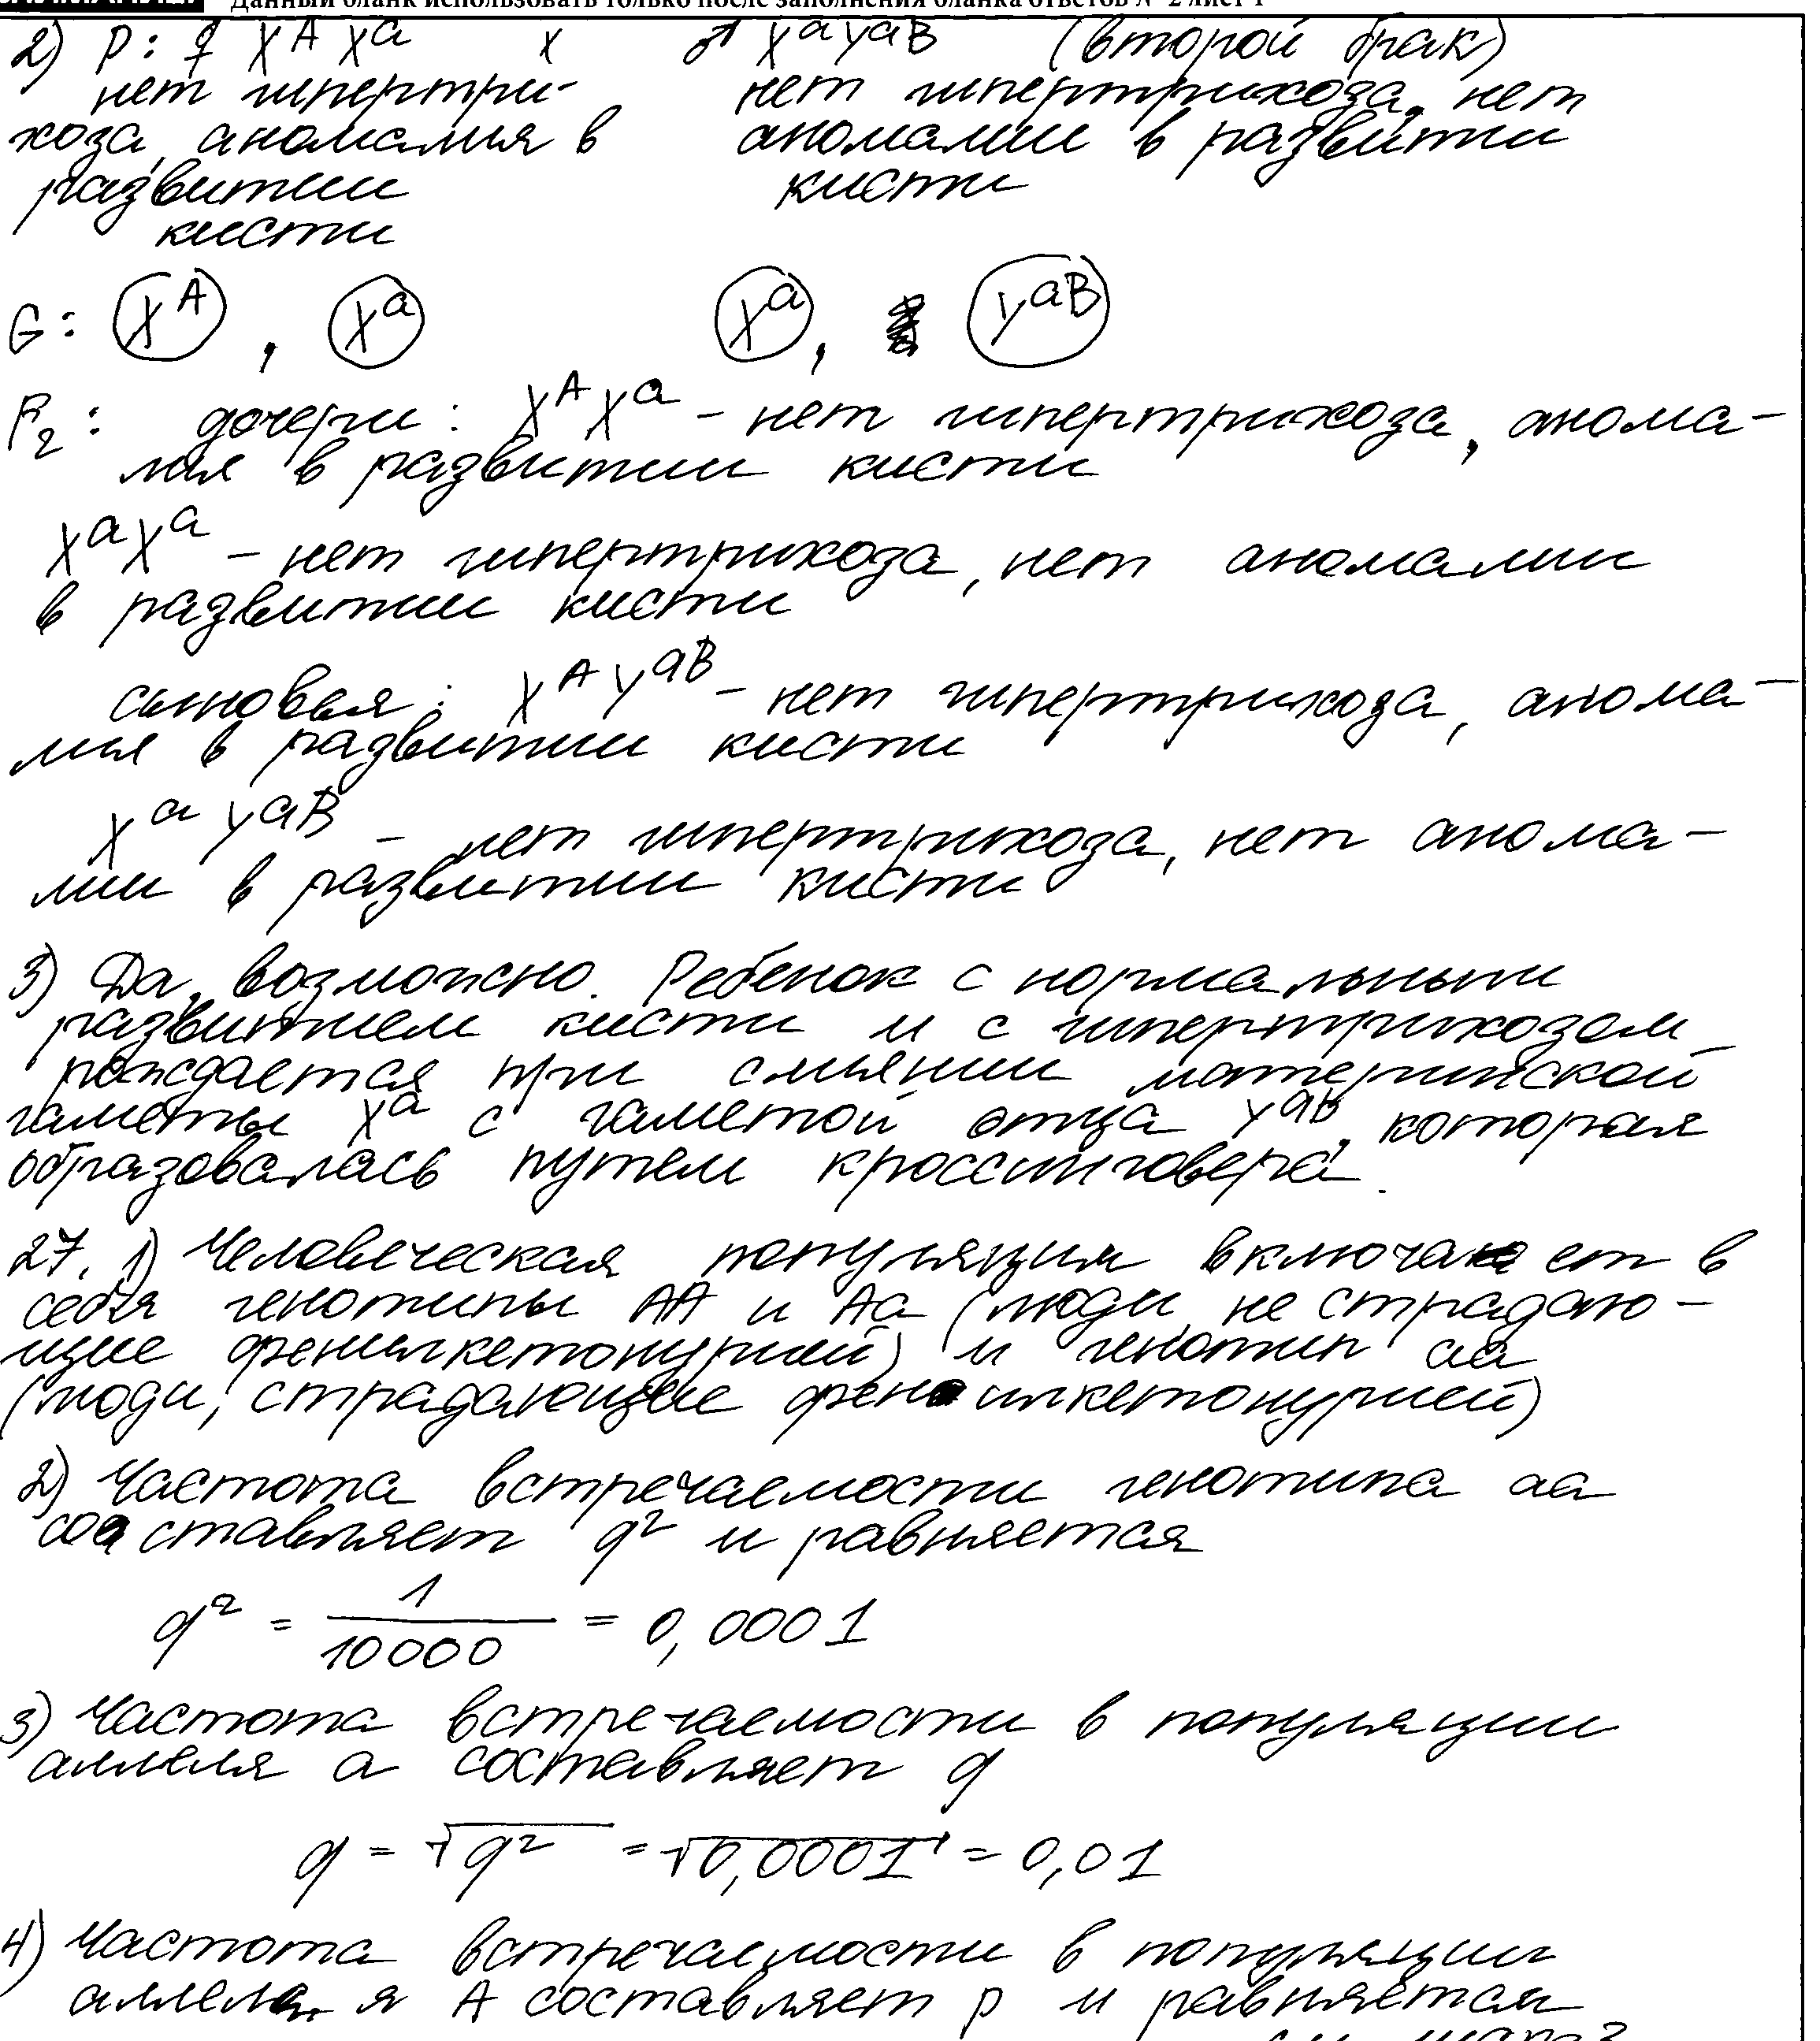 Данный бланк использовать только после заполнения бланка ответов № 2 лист 1
2) P: ♀ X^A X^a x ♂ X^a Y^aB (второй брак)
нет гипертри- нет гипертрихоза, нет
хоза, аномалия в аномалии в развитии
развитии кисти
кисти
G: X^A, X^a X^a, Y^aB
F2: дочери: X^A X^a - нет гипертрихоза, анома-
лия в развитии кисти
X^a X^a - нет гипертрихоза, нет аномалии
в развитии кисти
сыновья: X^A Y^aB - нет гипертрихоза, анома-
лия в развитии кисти
X^a Y^aB - нет гипертрихоза, нет анома-
лии в развитии кисти
3) Да, возможно. Ребенок с нормальным
развитием кисти и с гипертрихозом
рождается при слиянии материнской
гаметы X^a с гаметой отца Y^ab, которая
образовалась путем кроссинговера.
27. 1) Человеческая популяция включает в
себя генотипы AA и Aa (люди, не страдаю-
щие фенилкетонурией) и генотип aa
(люди, страдающие фенилкетонурией)
2) Частота встречаемости генотипа aa
составляет q² и равняется
q² = 1/10000 = 0,0001
3) Частота встречаемости в популяции
аллеля a составляет q
q = √q² = √0,0001 = 0,01
4) Частота встречаемости в популяции
аллеля A составляет p и равняется